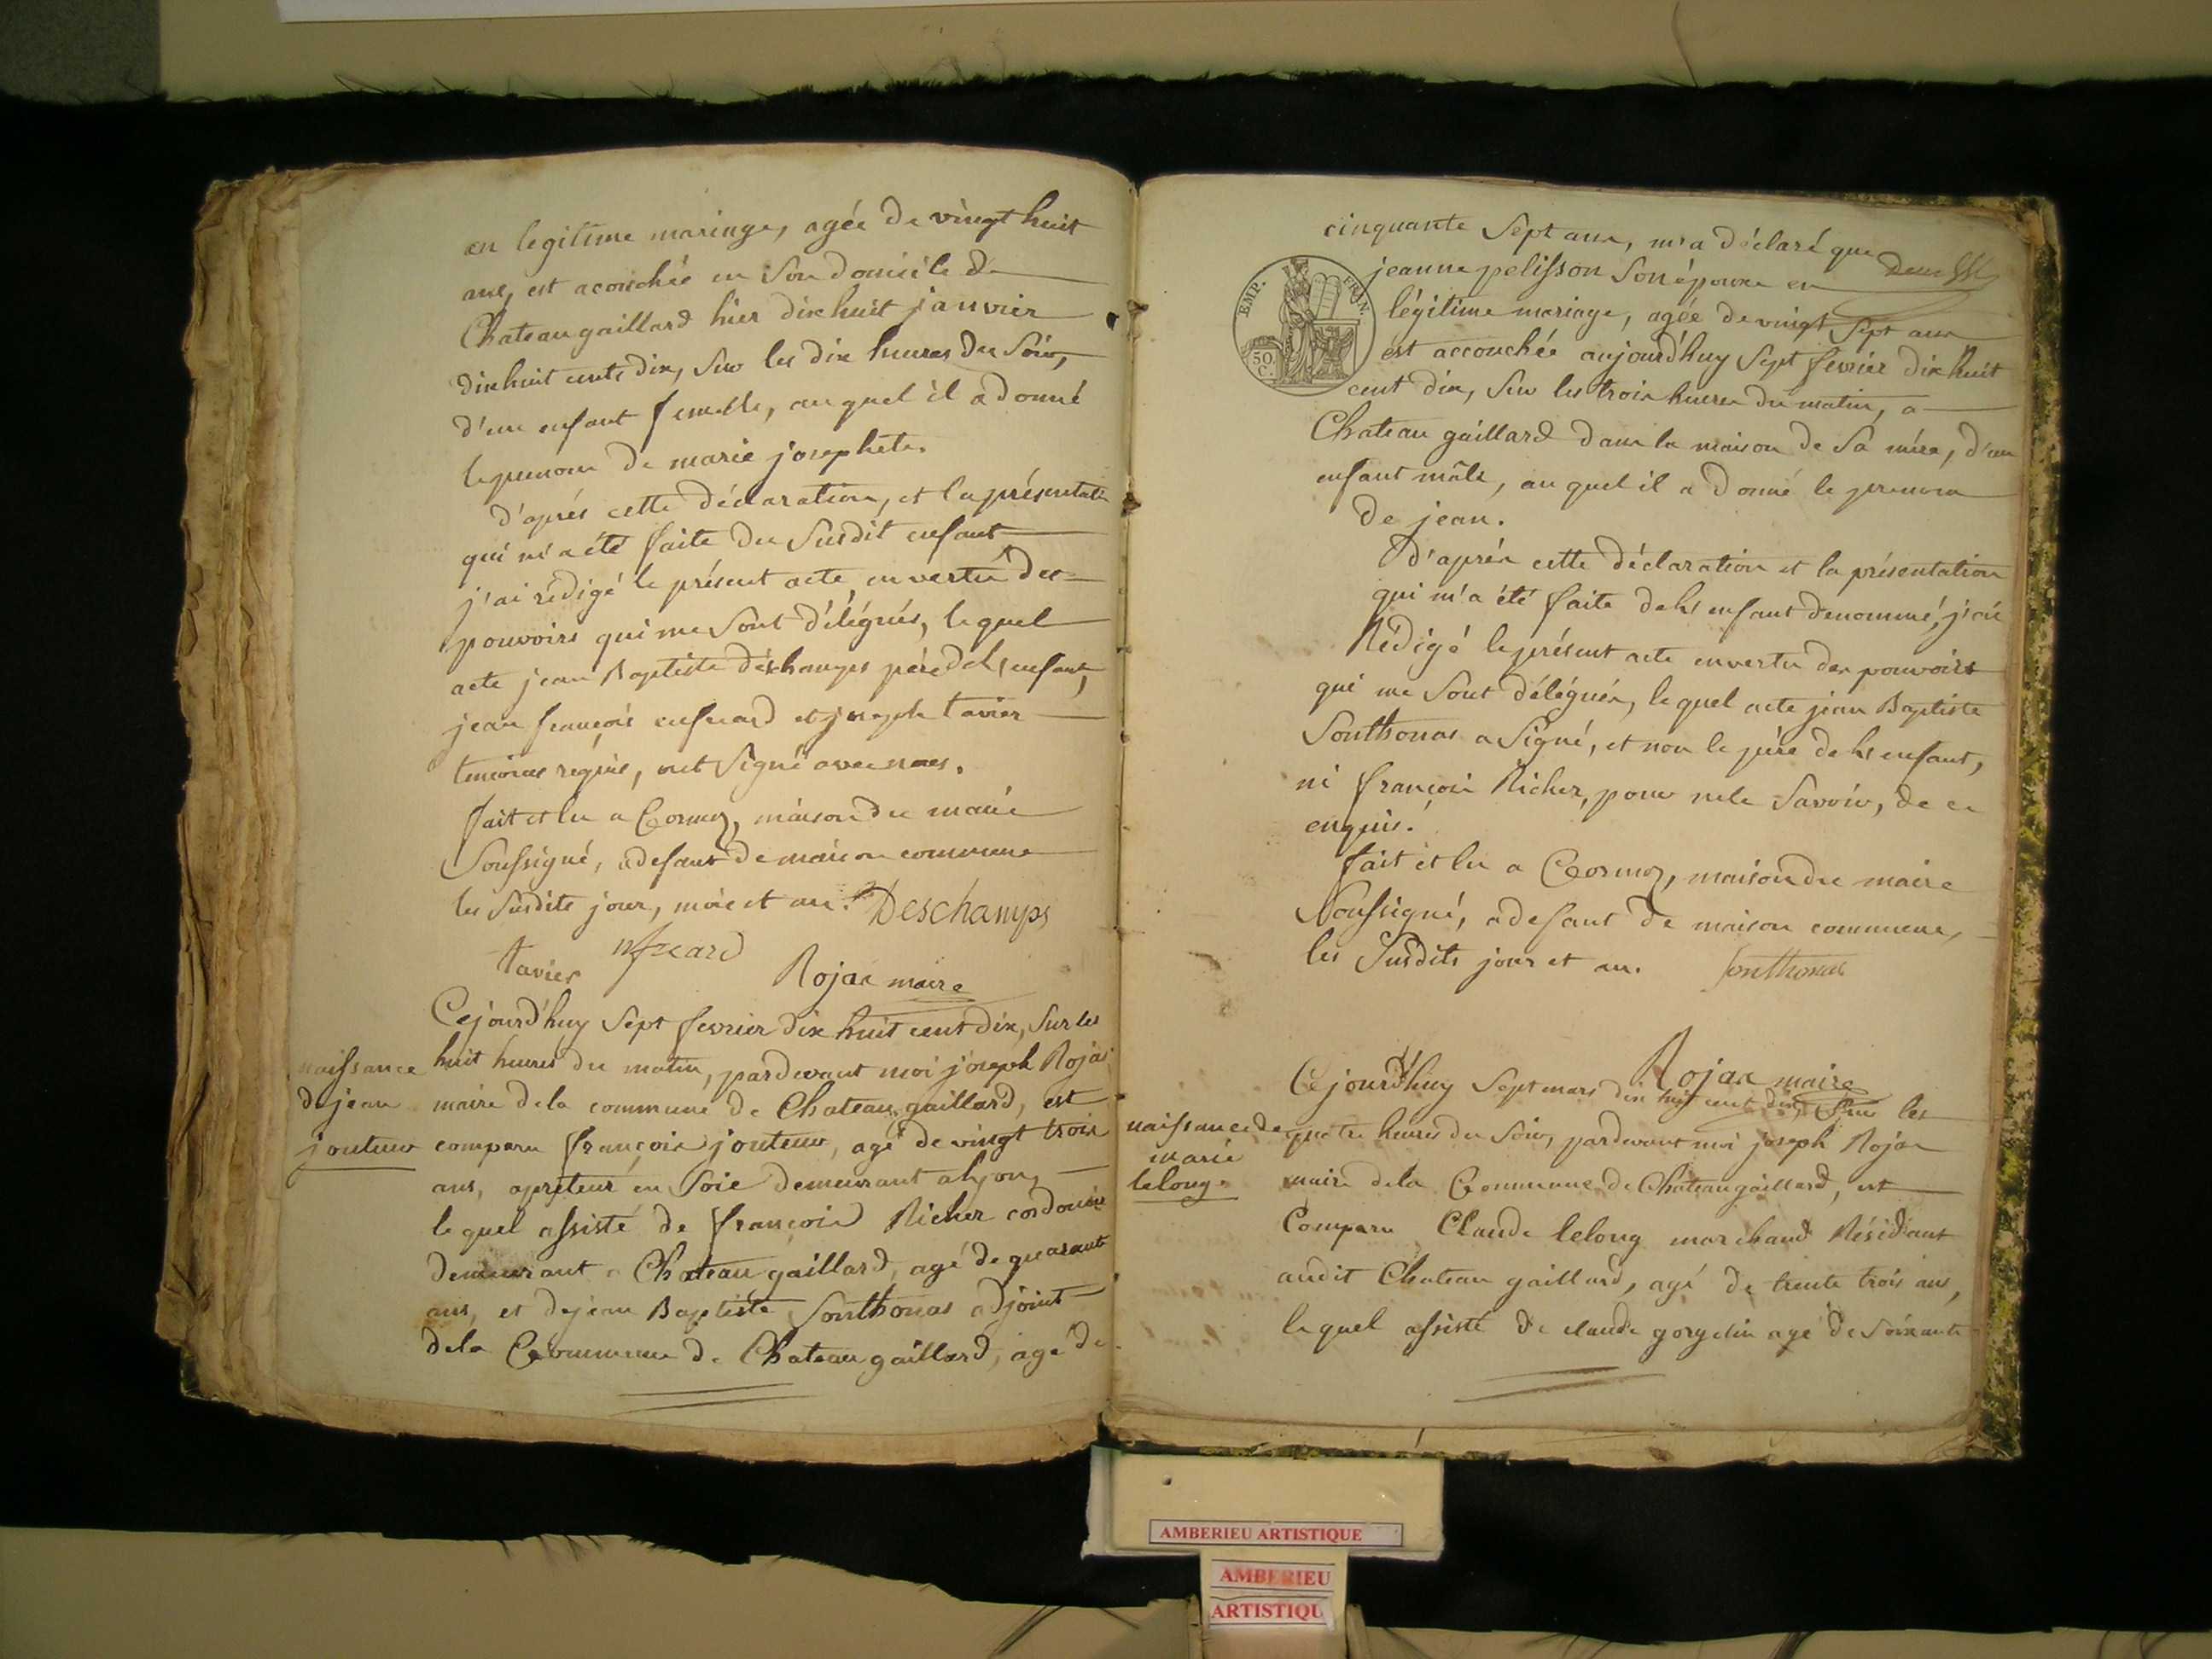 en legitime mariage, agée de vingt huit
ans, est acouchée en son domicile de
Chateaugaillard hier dix huit janvier
dix huit cents dix, sur les dix heures du soir,
d'un enfant femelle, au quel il a donné
le prenom de marie josephete.
d'aprés cette déclaration, et la présentati
qui m'a été faite du susdit enfant
j'ai rédigé le présent acte, en vertu des
pouvoirs qui me sont délégués, le quel
acte jean Baptiste déschamps pére dels enfant,
jean françois et joseph tavier
temoins requis, ont signé avec nous.
fait et lu a Cormoz, maison du maire
soussigné, a defaut de maison commune
les susdits jour, mois et an. Deschamps
tavier
Rojat maire
Cejourd'huy sept fevrier dix huit cent dix, sur les
naissance
de jean
jouteur
huit heures du matin, pardevant moi joseph Rojat
maire dela commune de Chateau gaillard, est
comparu françois jouteur, agé de vingt trois
ans, apréteur en soie demeurant a lyon,
le quel assisté de françois Richer cordonier
demeurant a Chateau gaillard, agé de quarante
ans, et de jean Baptiste Sonthonas adjoint
dela Commune de Chateau gaillard, agé de
cinquante sept ans, m'a déclaré que
jeanne pelisson son épouse en
légitime mariage, agée de vingt sept ans
est accouchée aujourd'huy sept fevrier dix huit
cent dix, sur les trois heures du matin, a
Chateau gaillard dans la maison de sa mére, d'un
enfant mâle, au quel il a donné le prenom
de jean.
EMP. FRAN.
50 C.
D'aprés cette déclaration et la présentation
qui m'a été faite dels enfant denommé, j'ai
Rédigé le présent acte en vertu des pouvoirs
qui me sont délégués, le quel acte jean Baptiste
Sonthonas a signé, et non le père dels enfant,
ni françois Richer, pour ne le savoir, de ce
enquis.
fait et lu a Cormoz, maison du maire
soussigné, a defaut de maison commune,
les susdits jour et an. Sonthonas
Rojat maire
Ce jourd'huy sept mars dix huit cent dix, sur les
naissance de
marie
lelong
quatre heures du soir, pardevant moi joseph Rojat
maire dela Commune de Chateaugaillard, est
Comparu Claude lelong marchand Résidant
audit Chateau gaillard, agé de trente trois ans,
le quel assisté de claude gorgelin agé de soixante
AMBERIEU ARTISTIQUE
AMBERIEU
ARTISTIQU